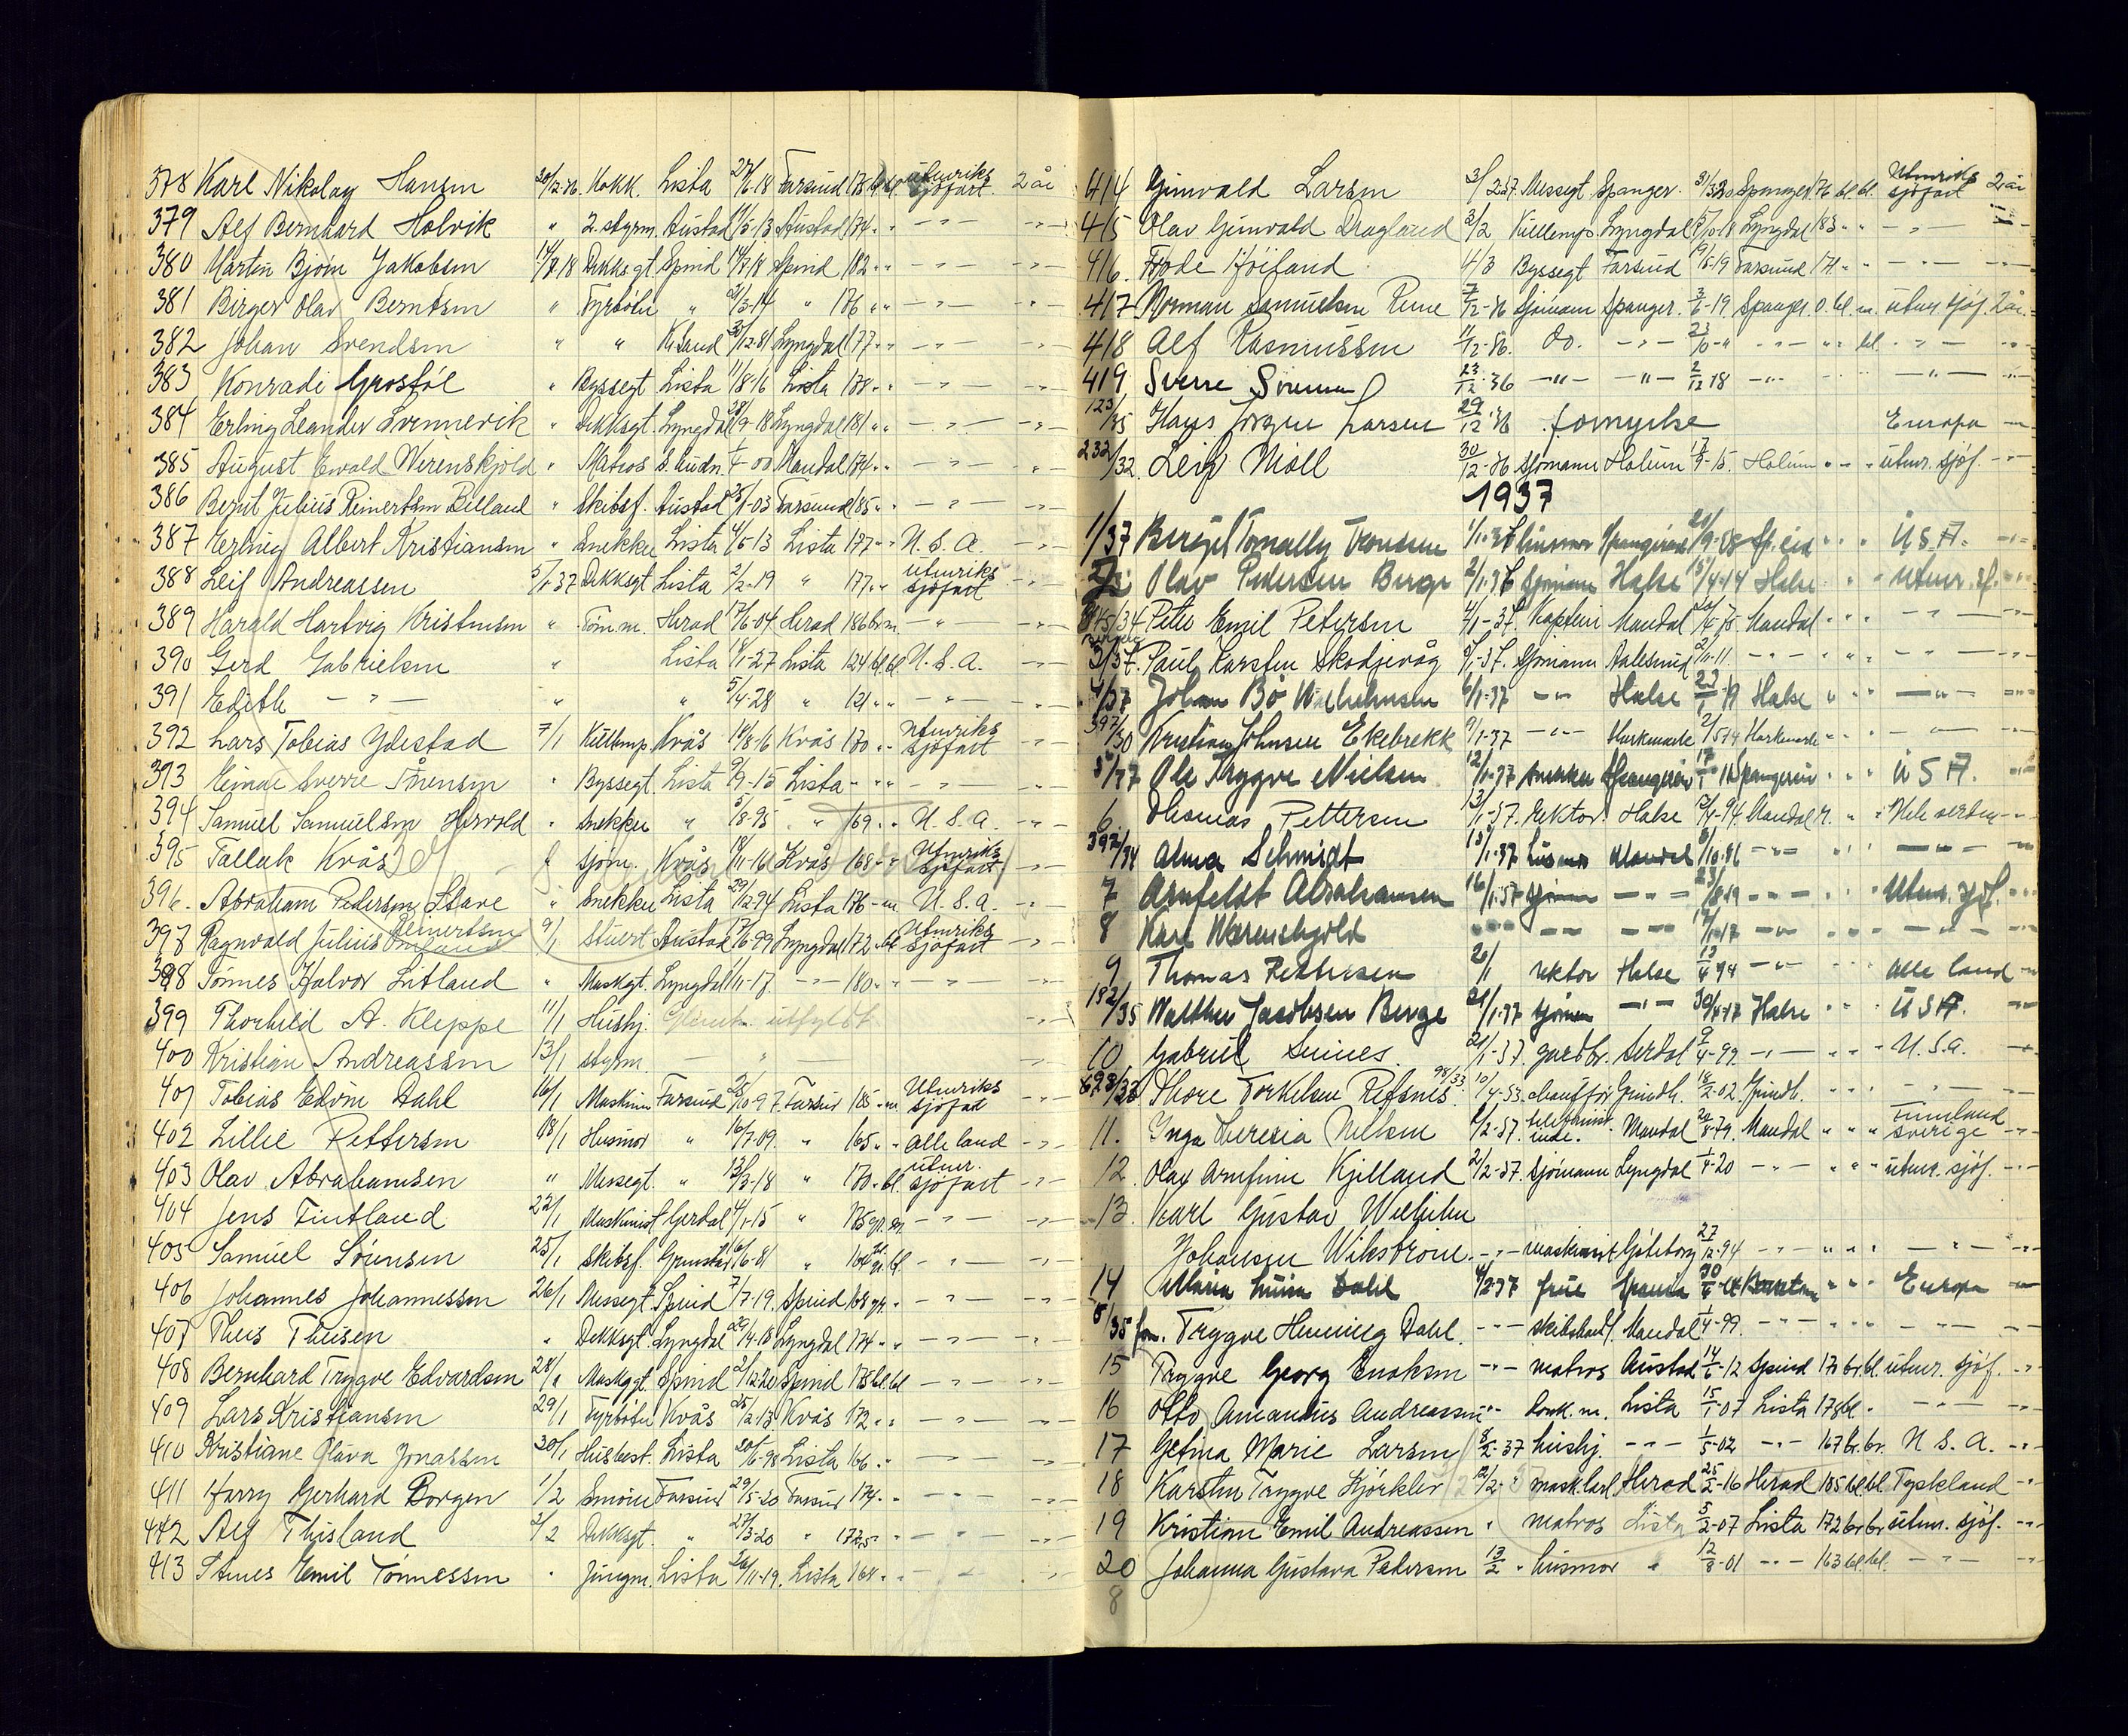 378 Karl Nikolay Hansen 30/12-36. Kokk Lista 27/6-18 Farsund 178 bl. bl. utenriks sjøfart. 2 år
379 Alf Bernhard Holvik " 2. styrm. Austad 11/5-13 Austad 174 " " - " - - " -
380 Martin Bjørn Jakobsen Dekksgt. Spind 14/7-18 Spind 182 " " - " - - " -
381 Birger Olav Berntsen " Fyrbøter " 21/3-14 " 176 " " - " - - " -
382 Johan Svendsen " " Kr.sand 30/12-81 Lyngdal 177 " " - " - - " -
383 Konradi Grostøl " Byssegt. Lista 11/8-16 Lista 178 " " - " - - " -
384 Erling Leander Svennevik " Dekksgt. Lyngdal 28/9-18 Lyngdal 181 " " - " - - " -
385 August Ewald Werenskjold " Matros S. Audn. 1/4-00 Mandal 174 " " - " - - " -
386 Berut Julius Reinertsen Billand " Skibsf. Austad 25/1-03 Farsund 185 " " - " - - " -
387 Erling Albert Kristiansen " Snekker Lista 4/5-13 Lista 177 " " U.S.A. - " -
388 Leif Andreassen 5/1 37 Dekksgt. Lista 2/2-19 " 177 " " utenriks sjøfart - " -
389 Harald Hartvig Kristensen " Tømm. Herad 17/6-04 Herad 186 br. m. - " - - " -
390 Gerd Gabrielsen " Lista 18/1-27 Lista 124 bl. bl. U.S.A. - " -
391 Edith - " - " " 5/4-28 " 121 " " - " - - " -
392 Lars Tobias Ydestad 7/1 Kullemp. Kvås 10/8-16 Kvås 170 " " utenriks sjøfart - " -
393 Einar Sverre " Byssegt. Lista 9/9-15 Lista - " " - " - - " -
394 Samuel Samuelsen " Snekker " 5/8-95 " 169 " " U.S.A. - " -
395 Tallak Kvås " sjøm. Kvås 18/11-16 Kvås 168 - " Utenriks sjøfart
396. Abraham Pedersen Stave " Snekker Lista 29/12-94 Lista 176 - m. U.S.A. - " -
397 Ragnvald Julius Reinertsen Omland 9/1 Stuert Austad 17/6-99 Lyngdal 172 " bl. Utenriks sjøfart - " -
398 Tønnes Halvor Litland " Maskgt. Lyngdal 1/11-17 - " - 180 " " - " - - " -
399 Thorhild A. Kleppe 11/1 Hushj. utfyldt - " -
400 Kristian Andreassen 13/1 styrm. - " - - " -
401 Tobias Edvin Dahl 16/1 Maskin Farsund 25/10-97 Farsund 185 " m. Utenriks sjøfart - " -
402 Lillie Pettersen 18/1 Husmor " 16/7-09. " 165 " " alle land - " -
403 Olav Abrahamsen " Messegt. " 13/3-18 " 170 " bl. utenr. sjøfart - " -
404 Jens Fintland 22/1 Maskinist Gerdal 4/1-15 " 175 gr. m. - " - - " -
405 Samuel Sørensen 25/1 Skibsf. Grimstad 16/6-81 " 164 gr. bl. - " - - " -
406 Johannes Johannessen 26/1 Messegt. Spind 7/7-19. Spind 168 gr. " - " - - " -
407 Theis Theisen " Dekksgt. Lyngdal 29/4-18 Lyngdal 174 " " - " - - " -
408 Bernhard Trygve Edvardsen 28/1 Maskgt. Spind 2/12-20 Spind 178 bl. bl. - " - - " -
409 Lars Kristiansen 29/1 Fyrbøter Kvås 25/12-13 Kvås 172 " " - " - - " -
410 Kristiane Olava Jonassen 30/1 Husbest. Lista 20/6-98 Lista 166 " " - " - - " -
411 Harry Gerhard Borgen 1/2 Smører Farsund 29/5-20 Farsund 174 " " - " - - " -
412 Alf Thisland 2/2 Dekksgt. " 27/3-20 " 172,5 " " - " - - " -
413 Emil Tønnessen " Jungm. Lista 26/11-19. Lista 164 " " - " - - " -
414 Gunvald Larsen 3/2 37. Messegt. Spanger. 31/3 20 Spanger. 176 bl. bl. Utenriks sjøfart 2 år
415 Olav Gunvald Dragland 3/2 Kullemp. Lyngdal 5/10-18 Lyngdal 183 " " - " - - " -
416. Frode Høiland 4/3 Byssegt. Farsund 19/5-19 Farsund 171 " " - " - - " -
417 Norman Samuelsen Rene 7/12-36 Sjømann Spanger. 3/6-19 Spanger. 0. bl. m. utenr. sjøf. 2 år.
418 Alf Rasmussen 11/12-36. do. - " - - " - " " bl. - " - - " -
419 Sverre Sørensen 23/12-36 - " - - " - 2/12 18 - " - - " - - " -
123/35 Hans Jørgen Larsen 29/12-36 fornyelse Europa - " -
232/32. Leif Moll 30/12-36 Sjømann Holum 17/9-15. Holum " " " utenr. sjøf. - " -
1937
1/37 Bergit Tomally Tronsen 1/1-37 husmor Spangereid 21/9-08 Sp.eid " " " U.S.A. - " -
Olav Pedersen Berge 2/1-37 Sjømann Halse 15/4-14 Halse " " " utenr. sf. - " -
845/34 Peter Emil Petersen 4/1-37. Kaptein Mandal Mandal " " " - " - - " -
3/37. Paul Karsten Skodjevåg 5/1-37. Sjømann Aalesund 2/11-11. - " - " " " - " - - " -
4/37 Johan Bö Wilhelmsen 6/1-37 - " - Halse Halse " " " - " - - " -
397/30 Kristian Johnsen Ekebrekk 9/1-37 - " - Harkmark 2/5-14 Harkmark " " " - " - - " -
5/37 Ole Trygve Nielsen 12/1-37 snekker Spangereid Spangereid " " " U S A. - " -
6. Thomas Pettersen 13/1-37. rektor Halse 13/4-94 Mandal " " " Hele verden - " -
392/34 Alma Schmidt 15/1-37 husmor Mandal 8/10-86 - " - " " " - " - - " -
7 Arnfeldt Abrahamsen 16/1-37 sjømann - " - 23/8-19 - " - " " " Utenr. sjøf. - " -
8 Karl Wærenskjold - " - - " - - " - 12/1-17 - " - " " " - " - - " -
9 Thomas Pedersen 20/1 rektor Halse 13/4 94 - " - " " " alle land - " -
182/35 Walther Jacobsen Berge 21/1-37 sjømann - " - 30/4-17 Halse " " " U S A. - " -
10 Gabriel Suines. 21/1-37. gardbr. Serdal 9/4-99 - " - " " " U.S.A. - " -
Thore Torkelsen Refsnes. 98/33 10/4-33. chauffør Grindh. 18/2-02. Grindh. " " " - " - - " -
11. Inga Theresia Nielsen 2/2-37. telefonist- inde. Mandal 20/8-79. Mandal " " " Finnland Sverige - " -
12. Olav Arnfinn Kjelland 2/2-37. Sjømann Lyngdal 1/4-20 - " - " " " utenr. sjøf. - " -
13. Karl Gustav Wilhelm
Johansen Wikström. - " - maskinist Göteborg 27/12-94 - " - " " " - " - - " -
14 Maria Luisa Dahl 4/2-37 frue Spania " " " Europa - " -
8/35 forn. Trygve Henning Dahl. - " - skibshandl. Mandal 1/4-99. - " - " " " - " - - " -
15 Trygve Georg Enoksen - " - matros Austad 14/6-12 Spind 178 br. bl. utenr. sjøf. - " -
16 Otto Amandus Andreassen " " Donk.m. Lista 15/1-07 Lista 178 bl. " - " - - " -
17 Getina Marie Larsen 8/2-37 hushj. - " - 1/5-02 - " - 167 br. br. U.S.A. - " -
18 Karsten Trygve Hjørklev 12/2- " mask.karl Herad 25/2-16 Herad 185 bl. bl. Tyskland - " -
19 Kristian Emil Andreassen " matros Lista 5/2-07 Lista 172 br. br. utenr. sjøf. - " -
20 Johanna Gustava Pedersen 13/2 " husmor " 12/8-01 - " - 163 bl. bl. - " - - " -
8